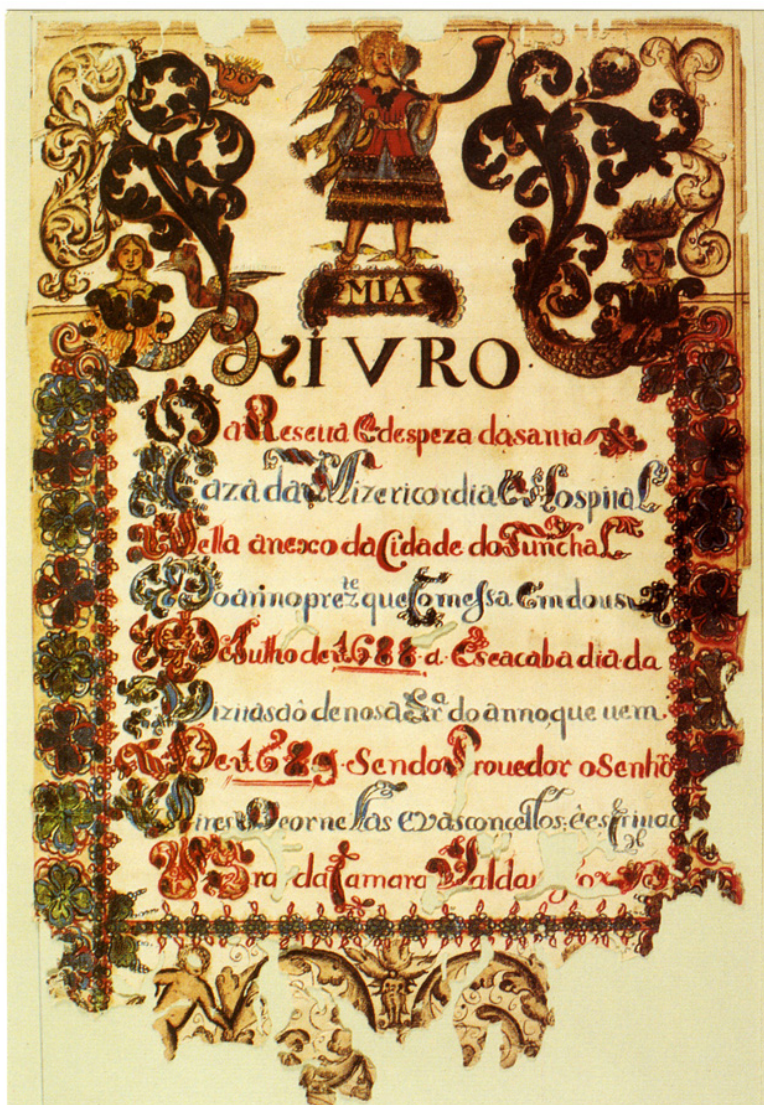 MIA
LIVRO
Da Reseita E despeza da santa
Caza da Mizericordia E Hospital
Della anexo da Cidade do Funchal
Do anno prezte que Comessa Em dous
De Julho de 1688 a. E se acaba dia da
Vizitasaõ de nosa Srª do anno que uem.
De 1689. Sendo Prouedor o Senhor
Aires De ornellas E Vasconcellos; e
da Camara